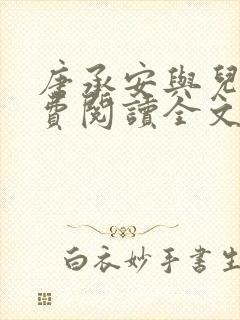 唐承安與兒
費閱讀全文
白衣妙手書生